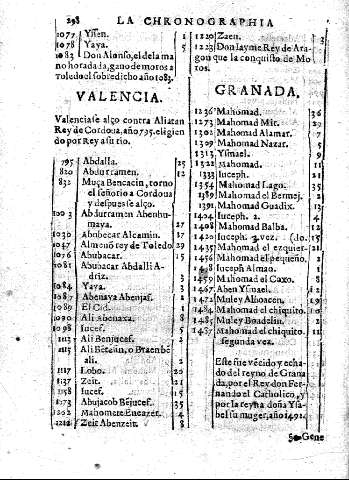 298 LA CHRONOGRAPHIA
1077 Yssen. 1
1078 Yaya. 5
1083 Don Alonso, el de la ma
no horadada, gano de moros a
Toledo el sobredicho año 1083.
VALENCIA.
Valencia se alço contra Aliatan
Rey de Cordoua, año, 795. eligien
do por Rey a su tio.
795 Abdalla. 25
820 Abdurramen. 12
832 Muça Bencacin, torno
el señorio a Cordoua
y despues se alço.
1003 Abdurramen Abenhu-
maya. 27
1030 Abubecar Alcamin. 17
1047 Almeno rey de Toledo 29
1076 Abubacar. 15
1081 Abubacar Abdalli A-
driz. 3
1084 Yaya. 3
1087 Abenaya Abenjaf. 2
1089 El Cid. 1
1090 Ali Abenaxa. 8
1098 Iucef. 5
1113 Ali Benjucef. 2
1115 Ali Betean, o Braen be
ali. 2
1117 Lobo. 20
1137 Zeit. 21
1158 Iucef. 15
1173 Abujacob Bejucef. 35
1202 Mahomete Eneazer. 4
1212 Zeit Abenzeit. 8
1220 Zaen. 3
1223 Don Iayme Rey de Ara-
gon que la conquisto de Mo
ros.
GRANADA.
1236 Mahomad. 36
1273 Mahomad Mir. 29
1302 Mahomad Alamar. 7
1309 Mahomad Nazar. 5
1313 Ysmael. 9
1322 Mahomad. 11
1333 Iuceph. 21
1354 Mahomad Lago. 35
1389 Mahomad el Bermej. 2
1391 Mahomad Guadix.
1404 Iuceph. 2. 4
1408 Mahomad Balba. 12
1420 Iuceph. 2. vez. (do. 15
1435 Mahomad el ezquier- 21
1456 Mahomad el pequeño. 2
1458 Iuceph Almao. 1
1459 Mahomad el Coxo. 8
1467 Aben Ysmael. 5
1472 Muley Alboacen.
1484 Mahomad el chiquito. 1
1485 Muley Boadelin. 2
1487 Mahomad el chiquito 11
segunda vez.
Este fue vēcido y echa
do del reyno de Grana
da, por el Rey don Fer-
nando el Catholico, y
por la reyna doña Ysa-
bel su muger, año 1491.
S 2 Gene